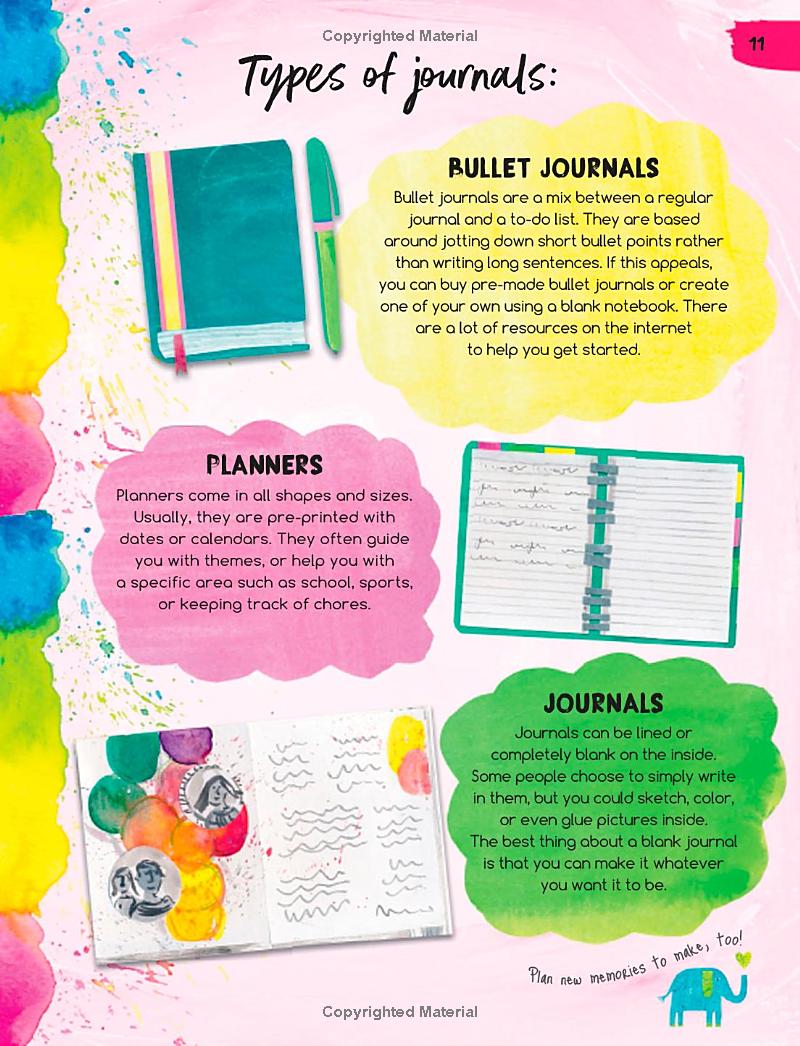 Copyrighted Material
11
Types of journals:
BULLET JOURNALS
Bullet journals are a mix between a regular
journal and a to-do list. They are based
around jotting down short bullet points rather
than writing long sentences. If this appeals,
you can buy pre-made bullet journals or create
one of your own using a blank notebook. There
are a lot of resources on the internet
to help you get started.
PLANNERS
Planners come in all shapes and sizes.
Usually, they are pre-printed with
dates or calendars. They often guide
you with themes, or help you with
a specific area such as school, sports,
or keeping track of chores.
JOURNALS
Journals can be lined or
completely blank on the inside.
Some people choose to simply write
in them, but you could sketch, color,
or even glue pictures inside.
The best thing about a blank journal
is that you can make it whatever
you want it to be.
Plan new memories to make, too!
Copyrighted Material